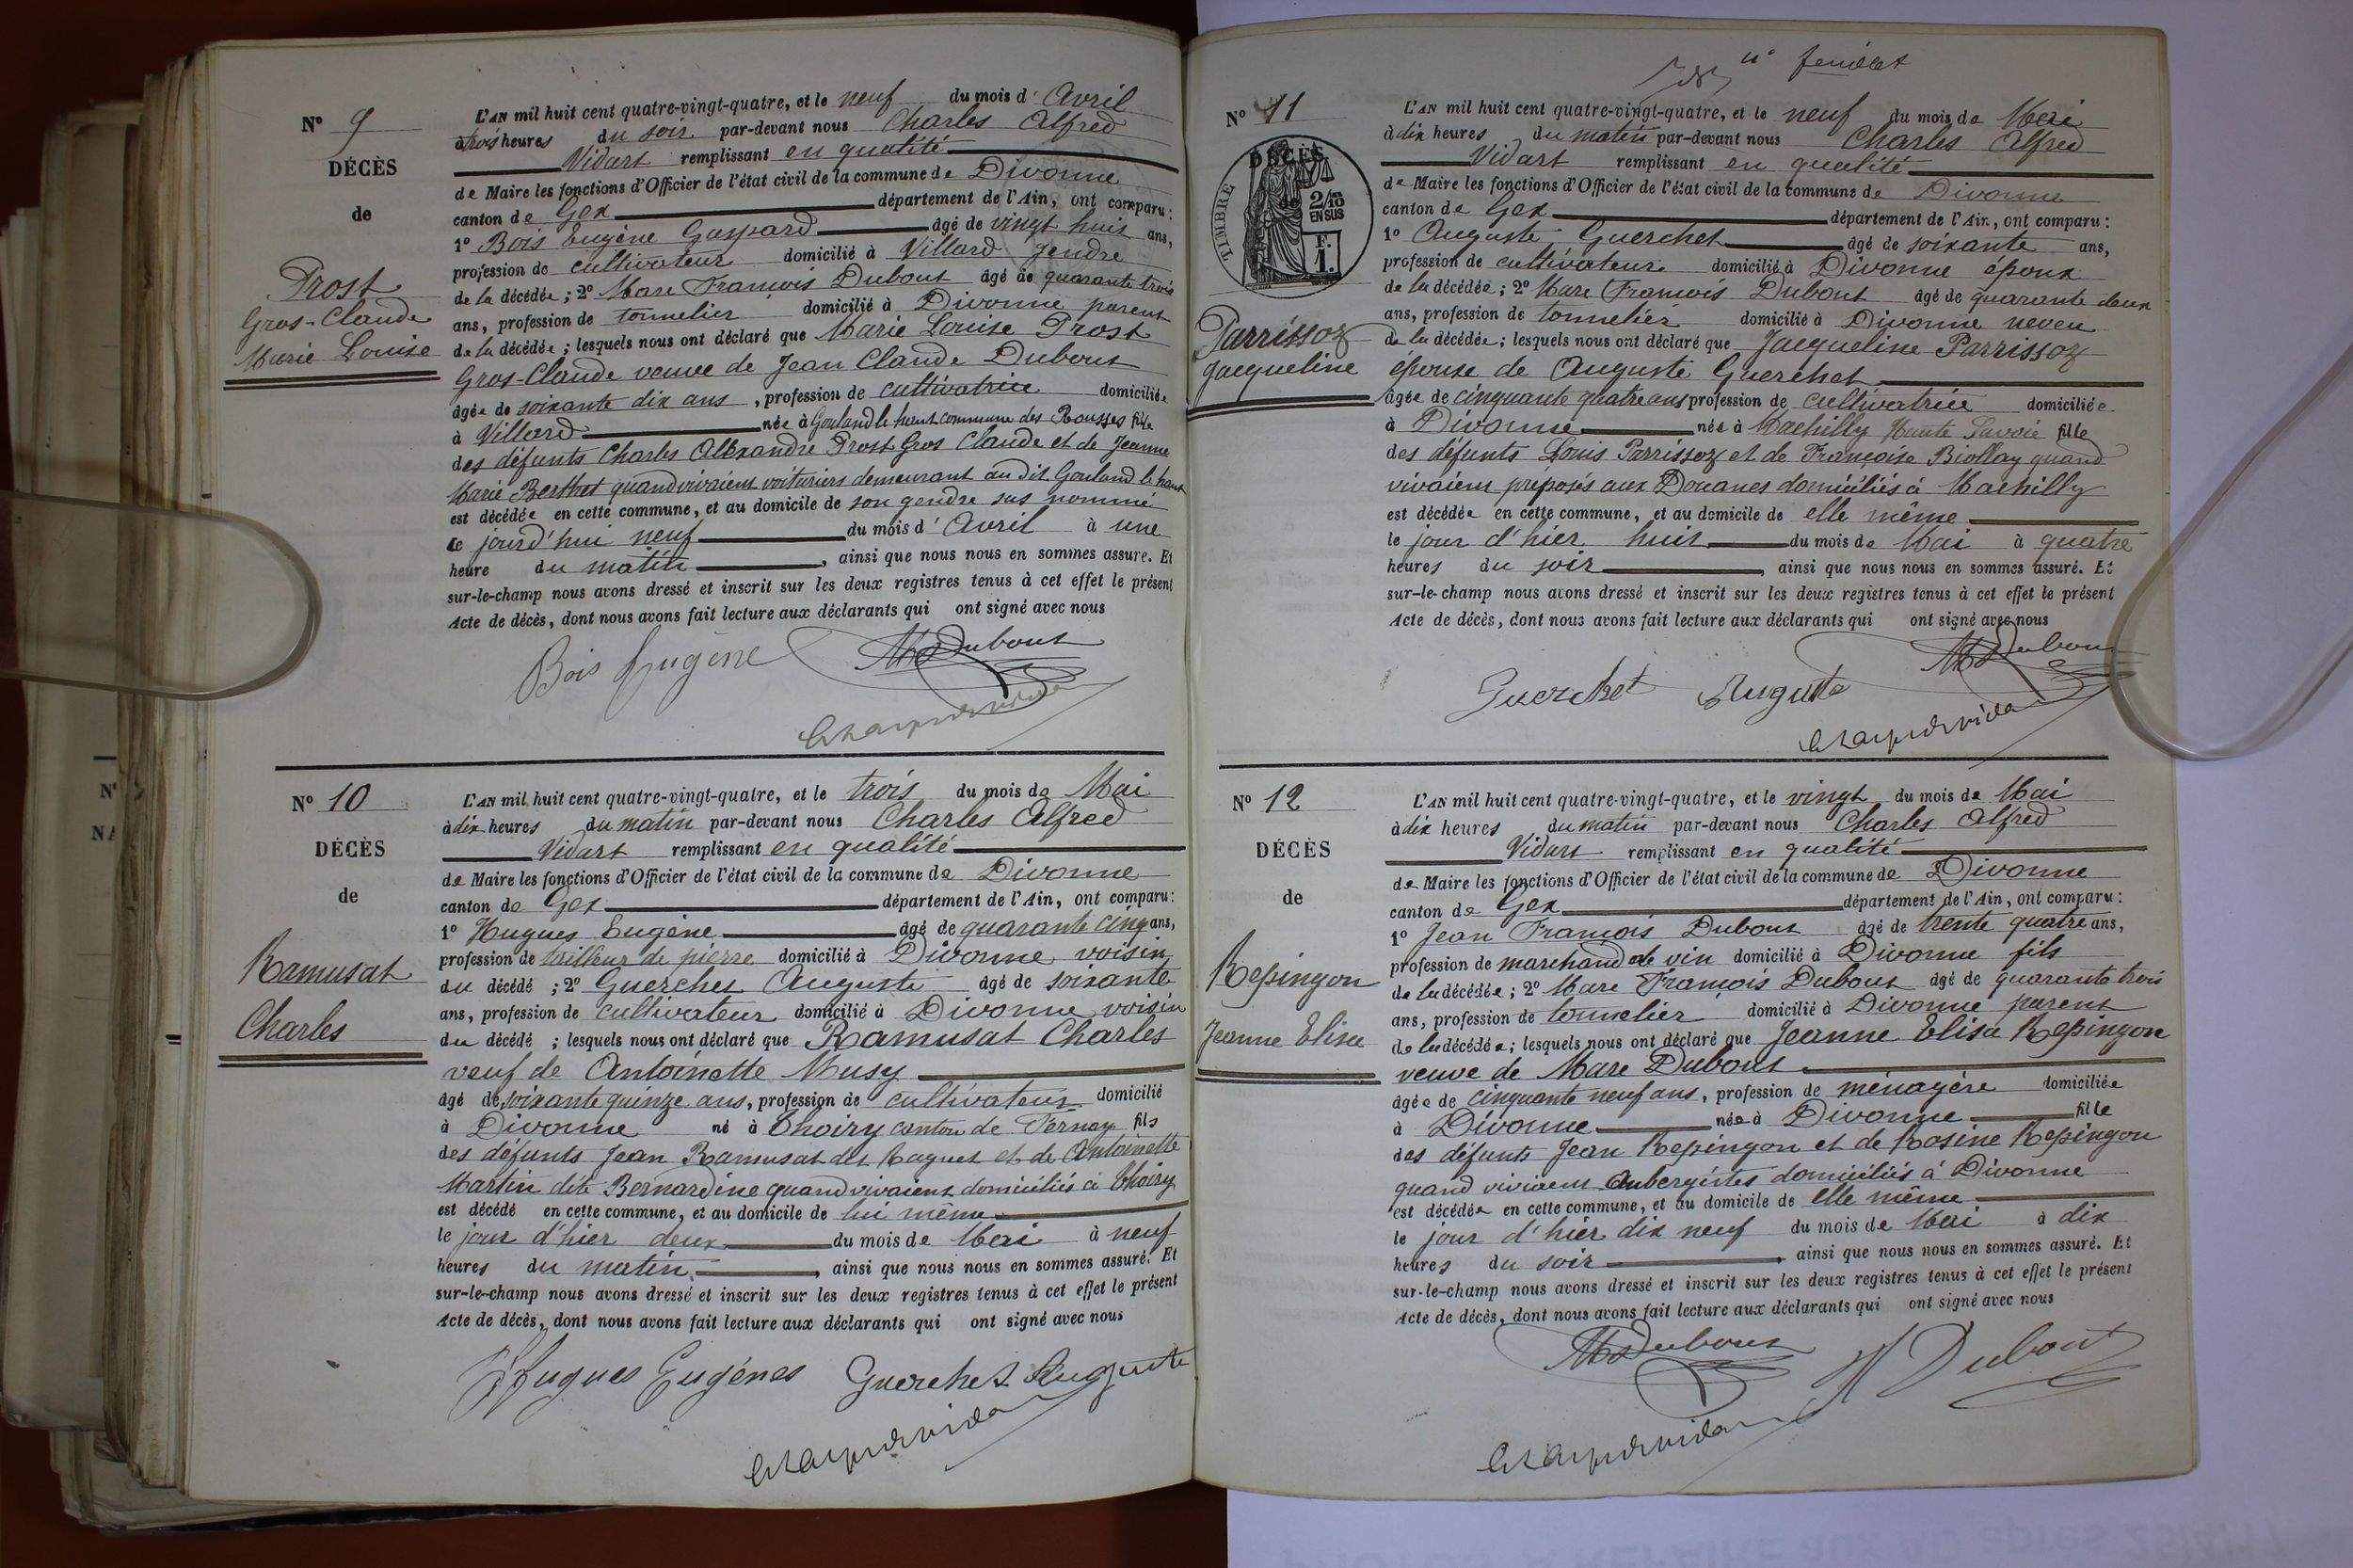 N° 9
DÉCÈS
de
Prost
Gros-Claude
Marie Louise
L'AN mil huit cent quatre-vingt-quatre, et le neuf du mois d'Avril
à trois heures du soir par-devant nous Charles Alfred
Vidart remplissant en qualité
de Maire les fonctions d'Officier de l'état civil de la commune de Divonne
canton de Gex département de l'Ain, ont comparu :
1° Bois Eugène Gaspard âgé de vingt huit ans,
profession de cultivateur domicilié à Villard gendre
de la décédée ; 2° Marc François Dubout âgé de quarante trois
ans, profession de tonnelier domicilié à Divonne parent
de la décédée ; lesquels nous ont déclaré que Marie Louise Prost
Gros-Claude veuve de Jean Claude Dubout
âgée de soixante dix ans, profession de cultivatrice domiciliée
à Villard née à Gouland le haut commune des Rousses fille
des défunts Charles Alexandre Prost Gros Claude et de Jeanne
Marie Berthet quand vivaient voituriers demeurant au dit Gouland le haut
est décédée en cette commune, et au domicile de son gendre sus nommé
le jourd'hui neuf du mois d'Avril à une
heure du matin, ainsi que nous nous en sommes assuré. Et
sur-le-champ nous avons dressé et inscrit sur les deux registres tenus à cet effet le présent
Acte de décès, dont nous avons fait lecture aux déclarants qui ont signé avec nous
Bois Eugène MDubout
N° 10
DÉCÈS
de
Ramusat
Charles
L'AN mil huit cent quatre-vingt-quatre, et le trois du mois de Mai
à dix heures du matin par-devant nous Charles Alfred
Vidart remplissant en qualité
de Maire les fonctions d'Officier de l'état civil de la commune de Divonne
canton de Gex département de l'Ain, ont comparu :
1° Hugues Eugène âgé de quarante cinq ans,
profession de tailleur de pierre domicilié à Divonne voisin
du décédé ; 2° Guerchet Auguste âgé de soixante
ans, profession de cultivateur domicilié à Divonne voisin
du décédé ; lesquels nous ont déclaré que Ramusat Charles
veuf de Antoinette Musy
âgé de soixante quinze ans, profession de cultivateur domicilié
à Divonne né à Thoiry canton de Fernay fils
des défunts Jean Ramusat dit Raguet et de Antoinette
Martin dite Bernardine quand vivaient domiciliés à Thoiry
est décédé en cette commune, et au domicile de lui même
le jour d'hier deux du mois de Mai à neuf
heures du matin, ainsi que nous nous en sommes assuré. Et
sur-le-champ nous avons dressé et inscrit sur les deux registres tenus à cet effet le présent
Acte de décès, dont nous avons fait lecture aux déclarants qui ont signé avec nous
Hugues Eugènes Guerchet Auguste
11e feuillet
N° 11
DÉCÈS
TIMBRE
2/10
EN SUS
F.
1.
Parrissoz
Jacqueline
L'AN mil huit cent quatre-vingt-quatre, et le neuf du mois de Mai
à dix heures du matin par-devant nous Charles Alfred
Vidart remplissant en qualité
de Maire les fonctions d'Officier de l'état civil de la commune de Divonne
canton de Gex département de l'Ain, ont comparu :
1° Auguste Guerchet âgé de soixante ans,
profession de cultivateur domicilié à Divonne époux
de la décédée ; 2° Marc François Dubout âgé de quarante deux
ans, profession de tonnelier domicilié à Divonne neveu
de la décédée ; lesquels nous ont déclaré que Jacqueline Parrissoz
épouse de Auguste Guerchet
âgée de cinquante quatre ans profession de cultivatrice domiciliée
à Divonne née à Machilly Haute Savoie fille
des défunts Louis Parrissoz et de Françoise Biollay quand
vivaient préposés aux Douanes domiciliés à Machilly
est décédée en cette commune, et au domicile de elle même
le jour d'hier huit du mois de Mai à quatre
heures du soir, ainsi que nous nous en sommes assuré. Et
sur-le-champ nous avons dressé et inscrit sur les deux registres tenus à cet effet le présent
Acte de décès, dont nous avons fait lecture aux déclarants qui ont signé avec nous
Guerchet Auguste MDubout
N° 12
DÉCÈS
de
Repingon
Jeanne Elisa
L'AN mil huit cent quatre-vingt-quatre, et le vingt du mois de Mai
à dix heures du matin par-devant nous Charles Alfred
Vidart remplissant en qualité
de Maire les fonctions d'Officier de l'état civil de la commune de Divonne
canton de Gex département de l'Ain, ont comparu :
1° Jean François Dubout âgé de trente quatre ans,
profession de marchand de vin domicilié à Divonne fils
de la décédée ; 2° Marc François Dubout âgé de quarante trois
ans, profession de tonnelier domicilié à Divonne parent
de la décédée ; lesquels nous ont déclaré que Jeanne Elisa Repingon
veuve de Marc Dubout
âgée de cinquante neuf ans, profession de ménagère domiciliée
à Divonne née à Divonne fille
des défunts Jean Repingon et de Rosine Repingon
quand vivaient Aubergistes domiciliés à Divonne
est décédée en cette commune, et au domicile de elle même
le jour d'hier dix neuf du mois de Mai à dix
heures du soir, ainsi que nous nous en sommes assuré. Et
sur-le-champ nous avons dressé et inscrit sur les deux registres tenus à cet effet le présent
Acte de décès, dont nous avons fait lecture aux déclarants qui ont signé avec nous
MDubout Dubout